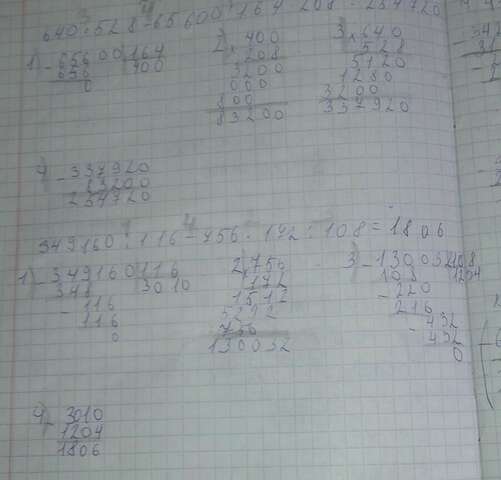 640·528-65600:164·208=254720
1) -65600|164
656 |400
0
2) ×400
208
3200
000
800
83200
3) ×640
528
5120
1280
3200
337920
4) -337920
83200
254720
349160:116-756·172:108=1806
1) -349160|116
348 |3010
-116
116
0
2) ×756
172
1512
5292
756
130032
3) -130032|108
108 |1204
-220
216
-432
432
0
4) -3010
1204
1806